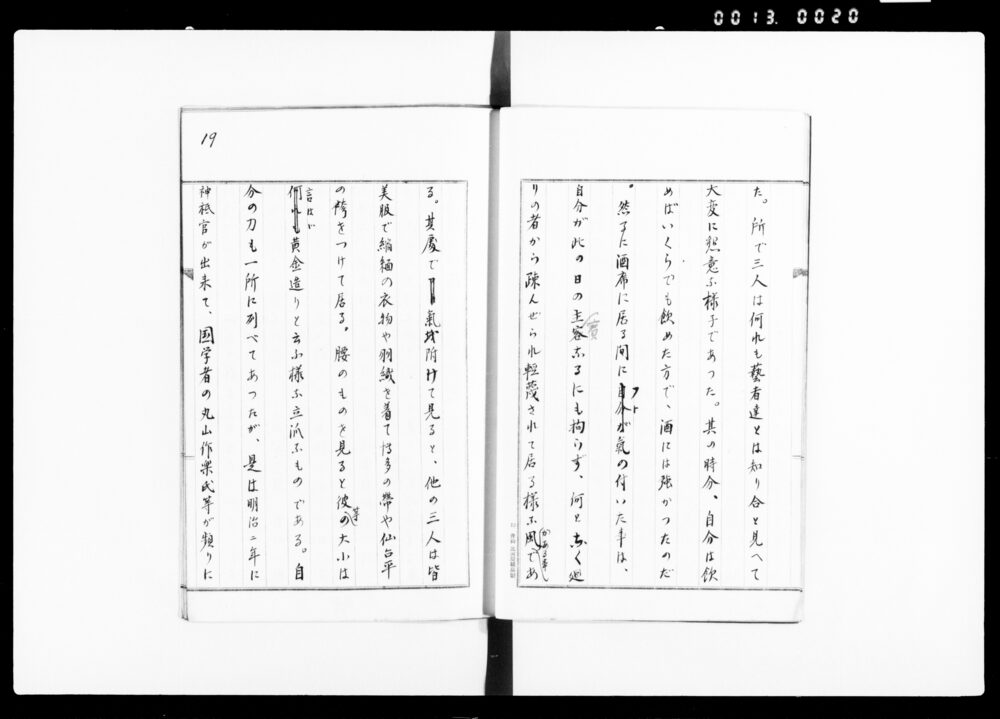 0013. 0020
た。所で三人は何れも藝者達とは知り合と見へて
大変に懇意な様子であつた。其の時分、自分は飲
めばいくらでも飲めた方で、酒には強かつたのだ
。然るに酒席に居る間にフト氣の付いた事は、
自分が此の日の主賓なるにも拘らず、何となく廻
りの者から疎んぜられ軽蔑されて居る様な風であ
19
る。其處で氣を附けて見ると、他の三人は皆
美服で縮緬の衣物や羽織を着て博多の帶や仙台平
の袴をつけて居る。腰のものを見ると彼等の大小は
言はゞ黄金造りと云ふ様な立派なものである。自
分の刀も一所に列べてあつたが、是は明治二年に
神祇官が出来て、国学者の丸山作楽氏等が頻りに